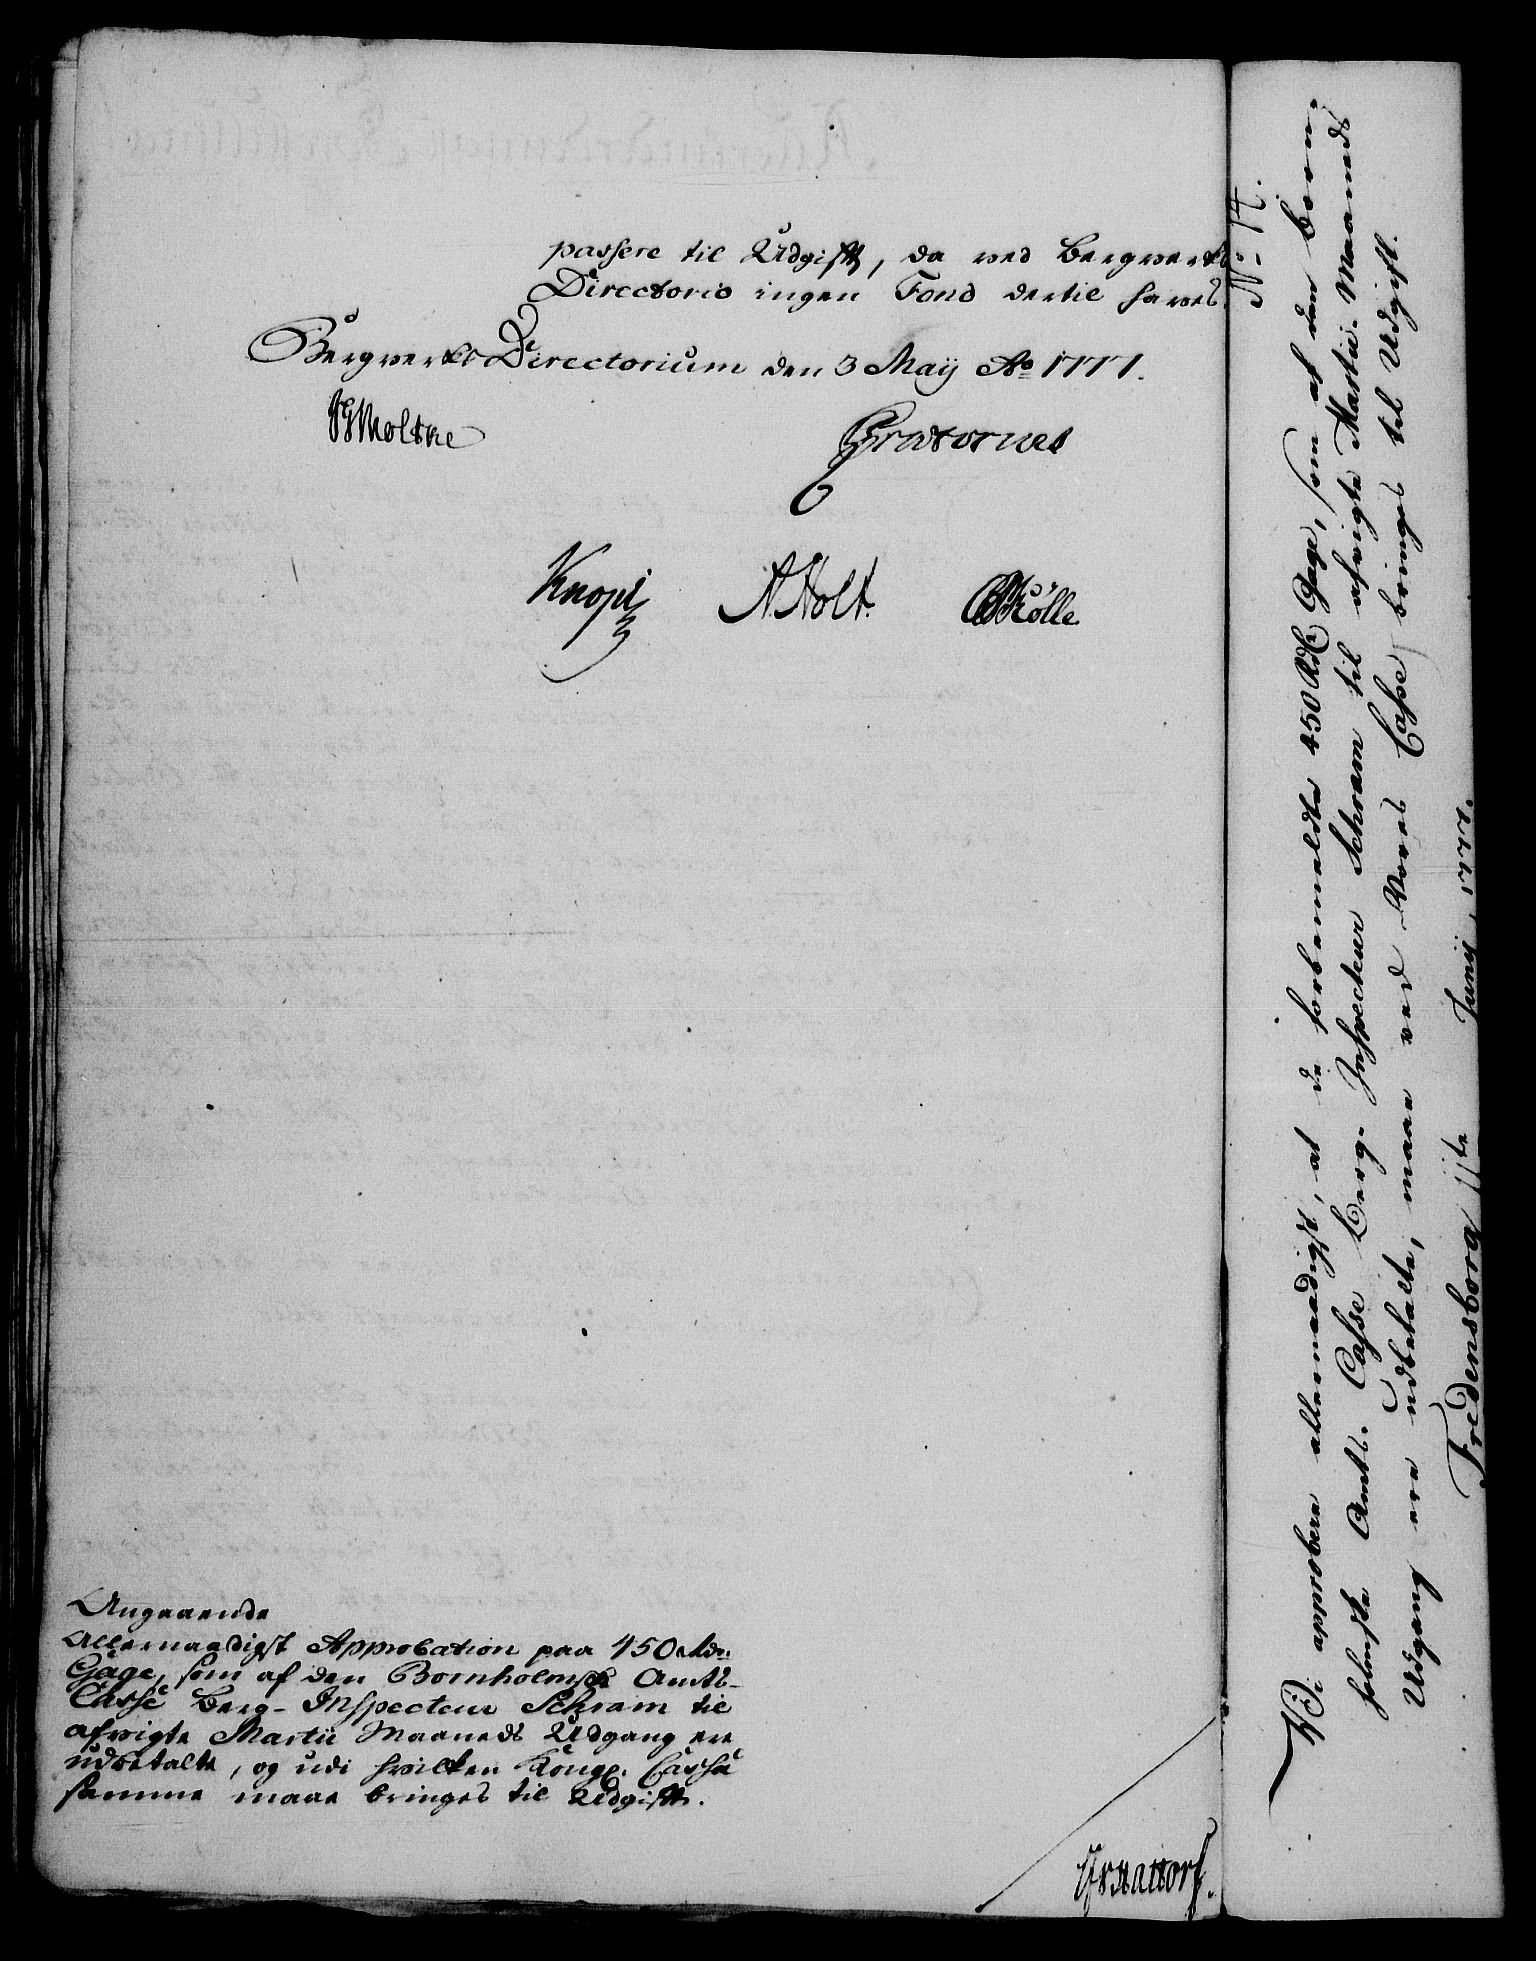 passere til Udgift, da ved Bergverks
Directorio ingen Fond dertil haves.
Bergverks Directorium den 3 Maij Ao 1777.
Moltke
Knopf
A. Holt.
Kölle
Angaaende
Allernaadigst Approbation paa 450 rdr.
Gage, som af den Bornholmske Amts-
Casse Berg-Inspecteur Schram til
afvigte Martii Maaneds Udgang ere
udbetalte, og udi hvilken Kongl. Cassa
samme maae bringes til Udgift.
No 14.
Vi approbere allernaadigst, at de forbemeldte 450 Rdl Gage, som af den born-
holmske Amts-Casse Berg-Inspecteur Schram til afvigte Martii-Maaneds
Udgang ere udbetalte, maae ved Vores Casse bringes til Udgift.
Fredensborg 11te Junij 1777.